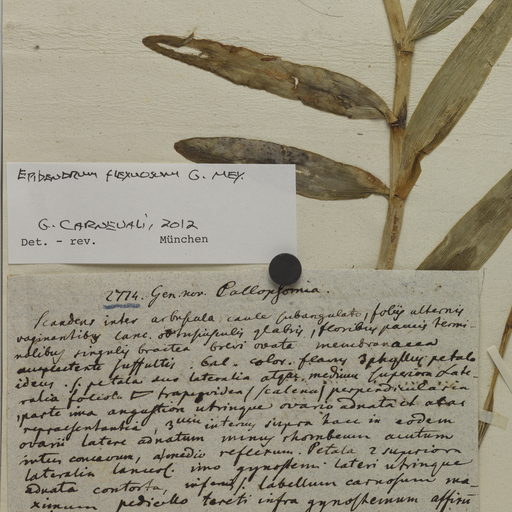 EPIDENDRUM FLEXUOSUM G. MEY.
G. CARNEVALI, 2012
Det. - rev. München
2774. Gen. nov.
Scandens inter arbuscula, caule subangulato, foliis alternis
vaginantibus lanc. glabris, floribus paucis termi-
nalibus singulis bractea brevi ovata membranacea
suffultis. Cal. color. flavus 3phyllus, petala
ideus. petala duo lateralia medium superiora late-
ralia trapezoidea (scalena) perpendicularia
parte ima angustiori utrinque ovario adnata et alas
repraesentantia, internus supra hacc in eodem
ovarii latere adnatum minus rhombeum acutum
intus concavum, medio reflexum. Petala 2 superiora
lateralia lanceol. imo gynostem. lateri utrinque
adnata contorta, infimus labellum carnosum ma-
ximum pedicello tereti infra gynostemum